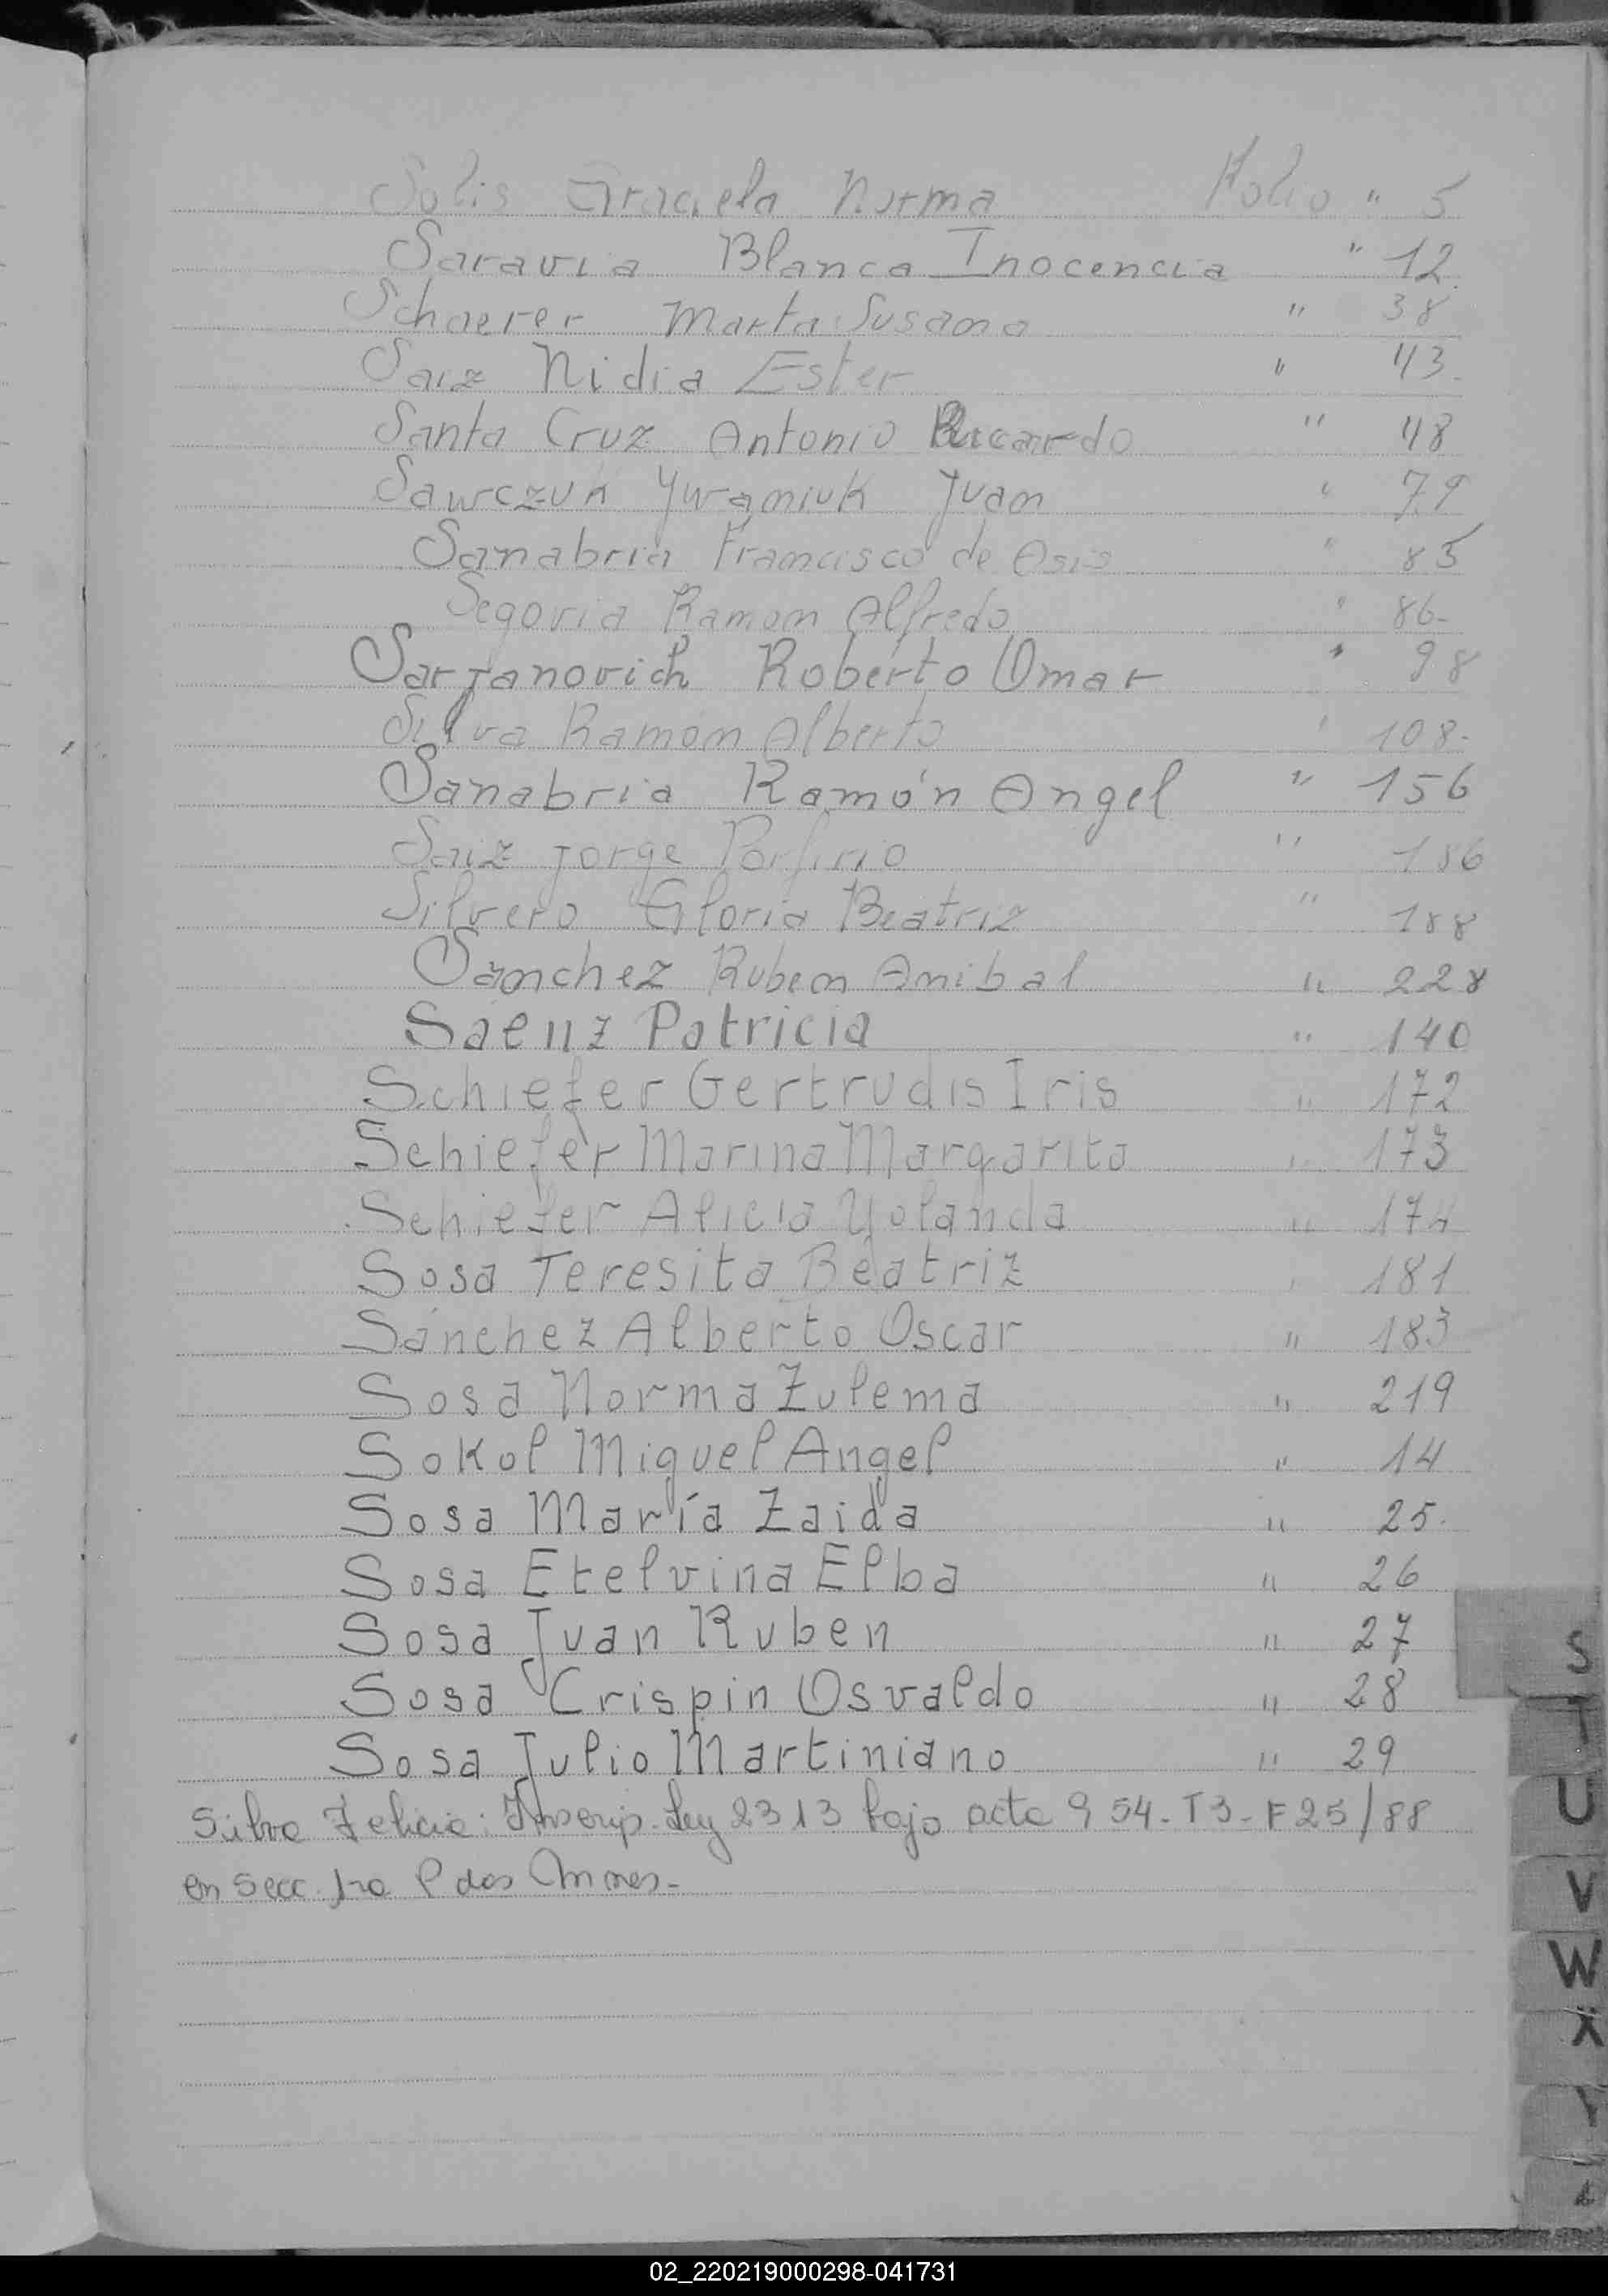 Solis Graciela Norma Folio " 5
Saravia Blanca Inocencia " 12
Schaerer Marta Susana " 38
Saiz Nidia Ester " 43
Santa Cruz Antonio Ricardo " 48
Sawczuk Ywaniuk Juan " 79
Sanabria Francisco de Asis " 85
Segovia Ramon Alfredo " 86-
Sarjanovich Roberto Omar " 98
Silva Ramón Alberto " 108-
Sanabria Ramón Angel " 156
Saiz Jorge Porfirio " 186
Silvero Gloria Beatriz " 188
Sanchez Ruben Anibal " 228
Saenz Patricia " 140
Schiefer Gertrudis Iris " 172
Schiefer Marina Margarita " 173
Schiefer Alicia Yolanda " 174
Sosa Teresita Beatriz " 181
Sánchez Alberto Oscar " 183
Sosa Norma Zulema " 219
Sokol Miguel Angel " 14
Sosa María Zaida " 25.
Sosa Etelvina Elba " 26
Sosa Juan Ruben " 27
Sosa Crispin Osvaldo " 28
Sosa Julio Martiniano " 29
Silva Felicia: Inscrip. Ley 2313 bajo acta 954-T3-F25/88
en Secc. 1ra Pdas
S
T
U
V
W
X
Y
02_220219000298-041731